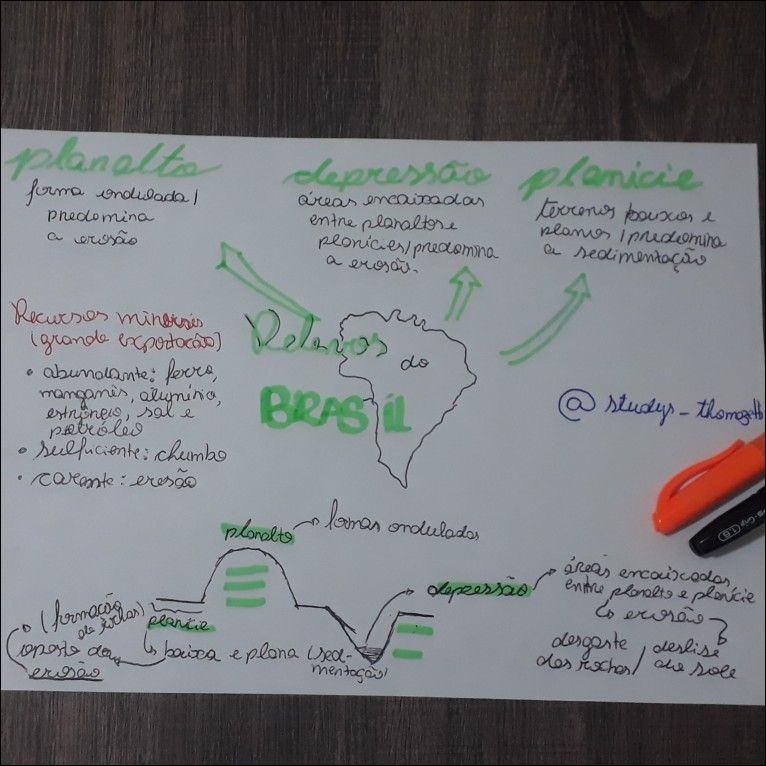 planalto
forma ondulada/
predomina
a erosão
depressão
áreas encaixadas
entre planaltos e
planícies/predomina
a erosão.
planície
terrenos baixos e
planos/predomina
a sedimentação
Relevos
do
BRASIL
Recursos minerais
(grande exportação)
• abundante: ferro,
manganês, alumínio,
sal e
petróleo
• sulficiente: chumbo
• carente:
@studys_thomazett
planalto → formas onduladas
depressão → áreas encaixadas
entre planalto e planície
↳ erosão
desgaste
das rochas/
deslise
do solo
planície
↳ baixa e plana (sedimentação)
(formação
de rochas)
oposto da
erosão